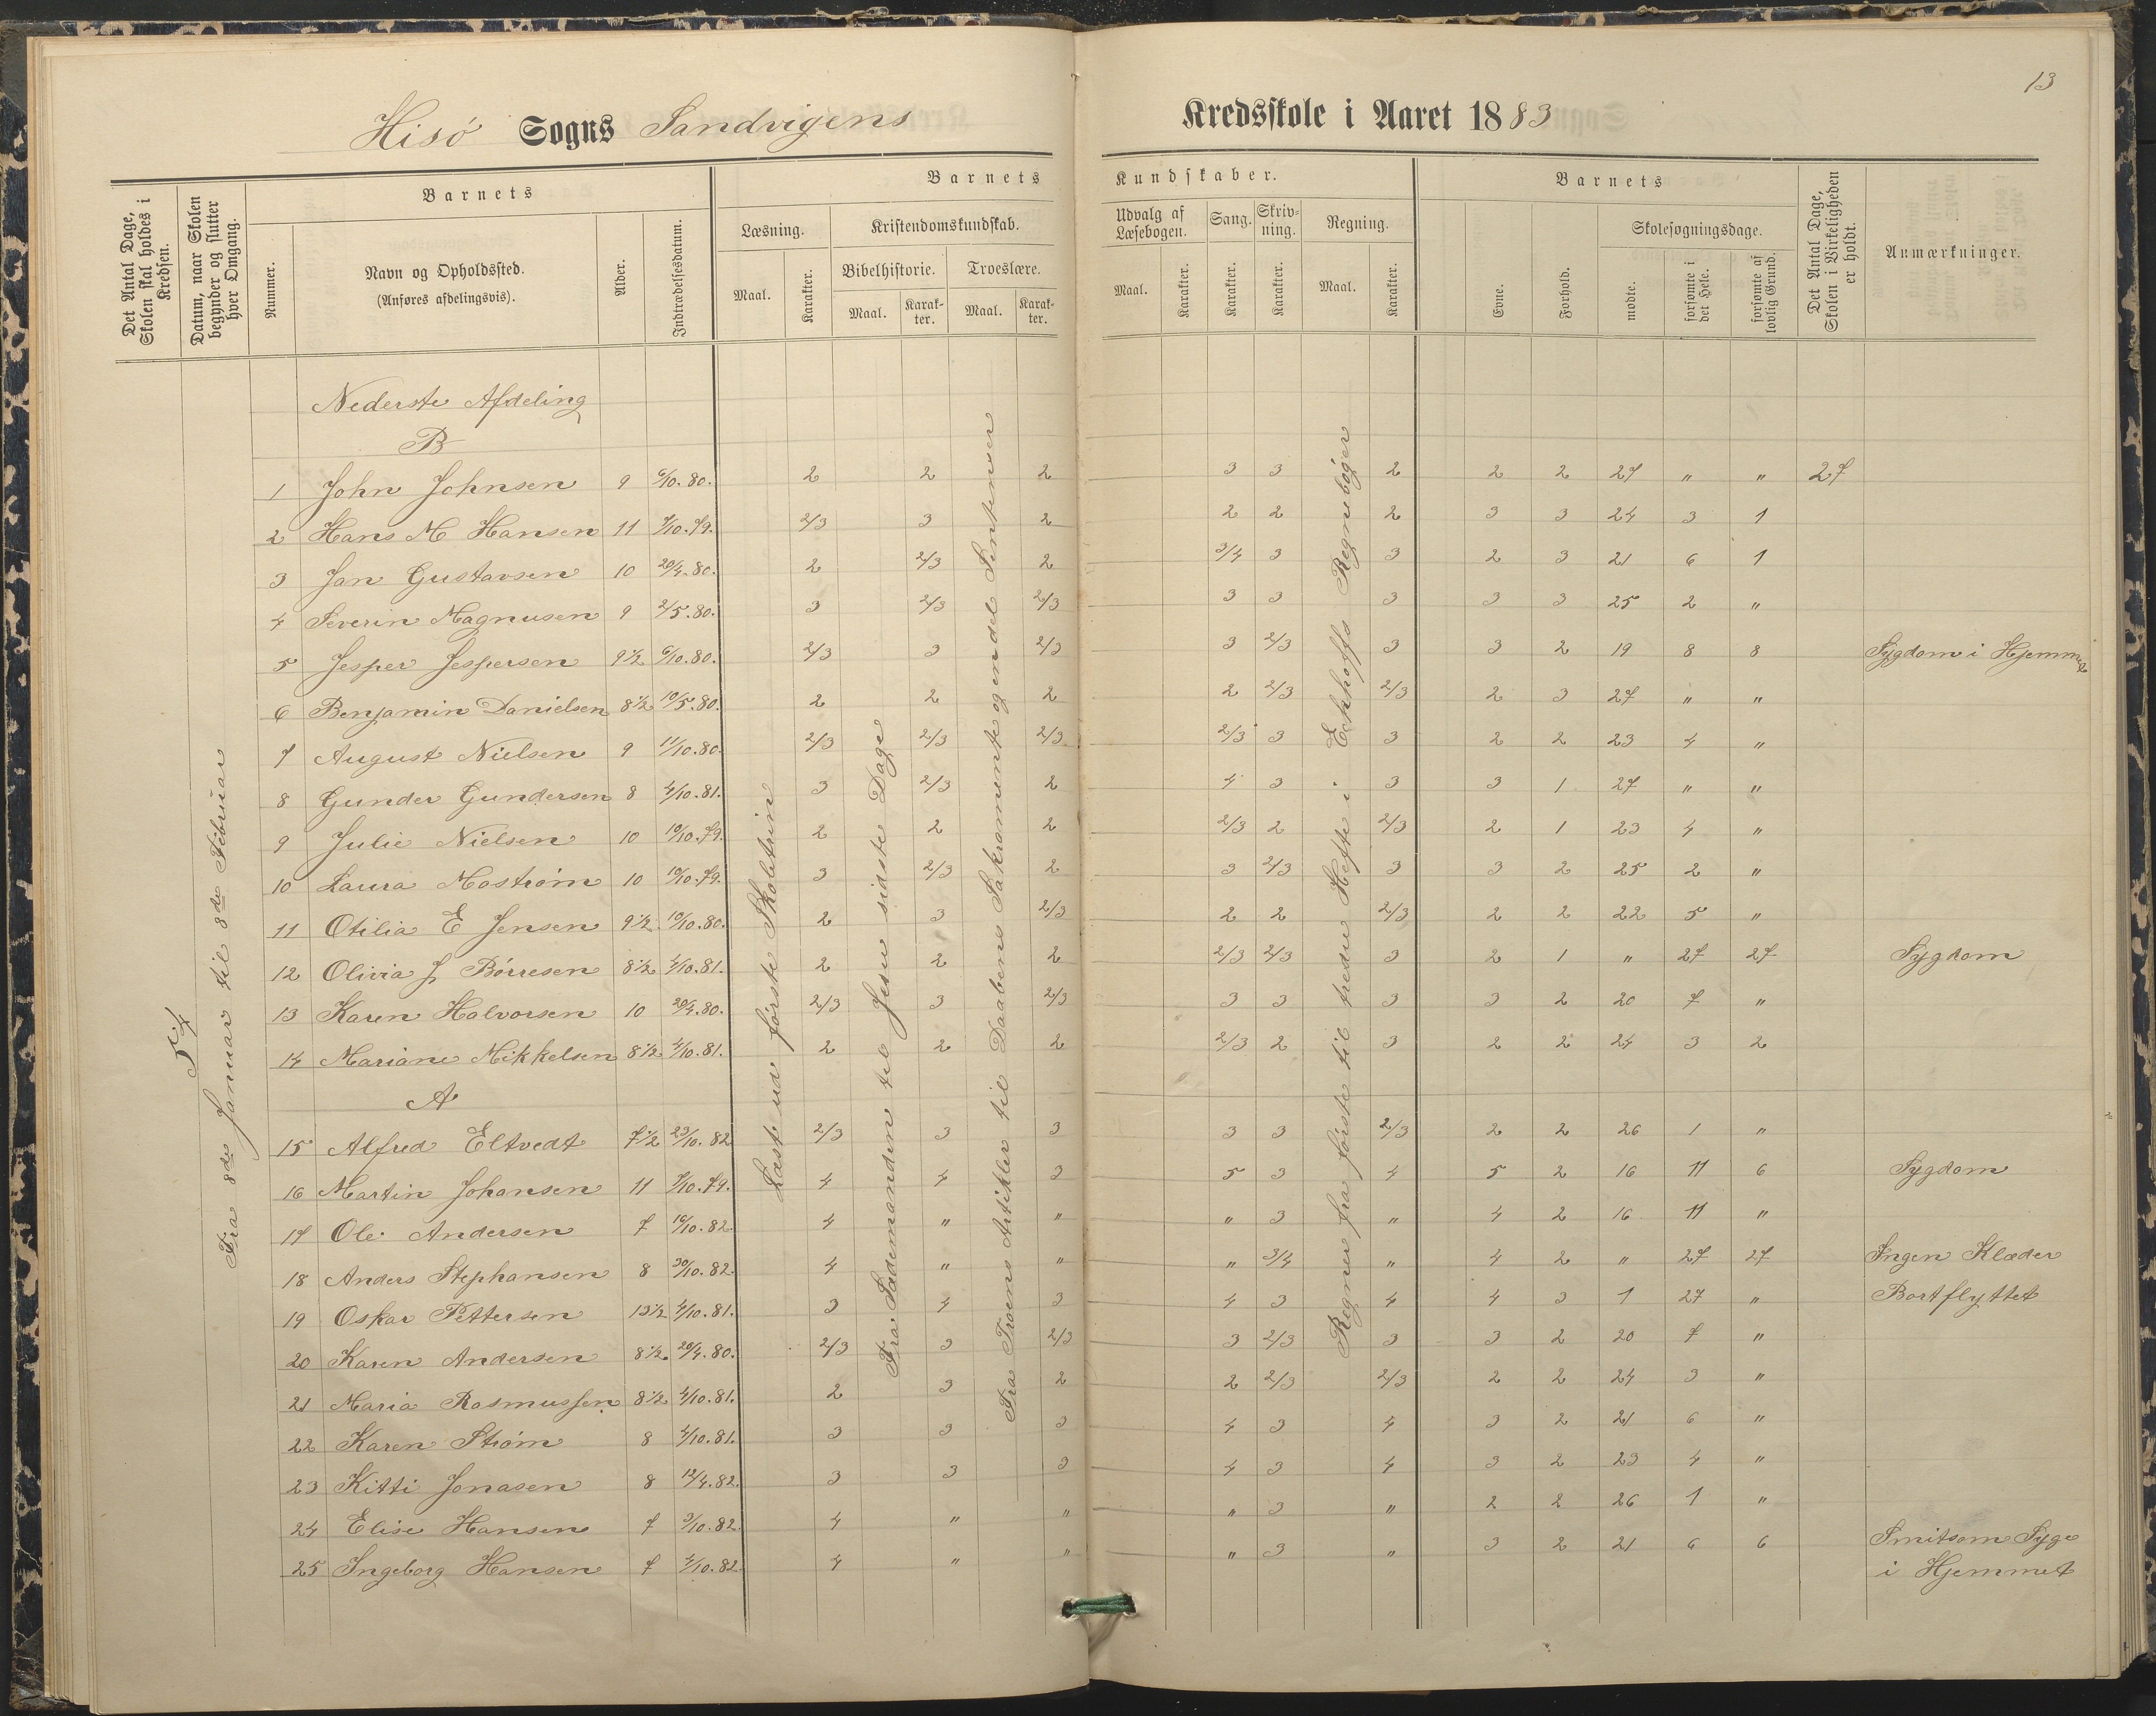 13
Hisö Sogns Sandvigens Kredsskole i Aaret 1883
Det Antal Dage, Skolen skal holdes i Kredsen.
Datum, naar Skolen begynder og slutter hver Omgang.
Barnets
Nummer.
Navn og Opholdssted.
(Anføres afdelingsvis).
Alder.
Indtrædelsesdatum.
Barnets Kundskaber.
Læsning.
Maal.
Karakter.
Kristendomskundskab.
Bibelhistorie.
Maal.
Karakter.
Troeslære.
Maal.
Karakter.
Udvalg af Læsebogen.
Maal.
Karakter.
Sang.
Karakter.
Skrivning.
Karakter.
Regning.
Maal.
Karakter.
Barnets
Evne.
Forhold.
Skolesøgningsdage.
mødte.
forsømte i det Hele.
forsømte af lovlig Grund.
Det Antal Dage, Skolen i Virkeligheden er holdt.
Anmærkninger.
54
Fra 8de Januar til 8de Februar
Læst ud første Skoletrin
Fra Sædemanden til Jesu sidste Dage
Fra Troens Artikler til Daabens Sakramente og endel Sentenser
Regner fra første til tredie Hefte i Eckhoffs Regnebøger
Nederste Afdeling
B
1 John Johnsen 9 6/10.80. 2 2 2 3 3 2 2 2 27 " " 27
2 Hans M Hansen 11 7/10.79. 2/3 3 2 2 2 2 3 3 24 3 1
3 Jan Gustavsen 10 20/4.80. 2 2/3 2 3/4 3 3 2 3 21 6 1
4 Severin Magnusen 9 2/5.80. 3 2/3 2/3 3 3 3 3 3 25 2 "
5 Jesper Jespersen 9 1/2 6/10.80. 2/3 3 2/3 3 2/3 3 3 2 19 8 8 Sygdom i Hjemmet
6 Benjamin Danielsen 8 1/2 10/5.80. 2 2 2 2 2/3 2/3 2 3 27 " "
7 August Nielsen 9 11/10.80. 2/3 2/3 2/3 2/3 3 3 2 2 23 4 "
8 Gunder Gundersen 8 4/10.81. 3 2/3 2 4 3 3 3 1 27 " "
9 Julie Nielsen 10 10/10.79. 2 2 2 2/3 2 2/3 2 1 23 4 "
10 Laura Mostrøm 10 10/10.79. 3 2/3 2 3 2/3 3 3 2 25 2 "
11 Otilia E Jensen 9 1/2 10/10.80. 2 3 2/3 2 2 2/3 2 2 22 5 "
12 Olivia J Börresen 8 1/2 4/10.81. 2 2 2 2/3 2/3 3 2 1 " 27 27 Sygdom
13 Karen Halvorsen 10 20/4.80. 2/3 3 2/3 3 3 3 3 2 20 7 "
14 Mariane Mikkelsen 8 1/2 4/10.81. 2 2 2 2/3 2 3 2 2 24 3 2
A
15 Alfred Eltvedt 7 1/2 23/10.82 2/3 3 3 3 3 2/3 2 2 26 1 "
16 Martin Johansen 11 7/10.79. 4 4 3 5 3 4 5 2 16 11 6 Sygdom
17 Ole Andersen 7 16/10.82. 4 " " " 3 " 4 2 16 11 "
18 Anders Stephansen 8 30/10.82. 4 " " " 3/4 " 4 2 " 27 27 Ingen Klæder
19 Oskar Pettersen 13 1/2 4/10.81. 3 4 3 4 3 4 4 3 1 27 " Bortflyttet
20 Karen Andersen 8 1/2 20/4.80. 2/3 3 2/3 3 2/3 3 3 2 20 7 "
21 Maria Rasmussen 8 1/2 4/10.81. 2 3 2 2 2/3 2/3 2 2 24 3 "
22 Karen Strøm 8 4/10.81. 3 3 3 4 3 4 3 2 21 6 "
23 Kitti Jonasen 8 12/4.82. 3 3 3 4 3 4 3 2 23 4 "
24 Elise Hansen 7 3/10.82. 4 " " " 3 " 2 2 26 1 "
25 Ingeborg Hansen 7 4/10.82 4 " " " 3 " 3 2 21 6 6 Smitsom Syge
i Hjemmet